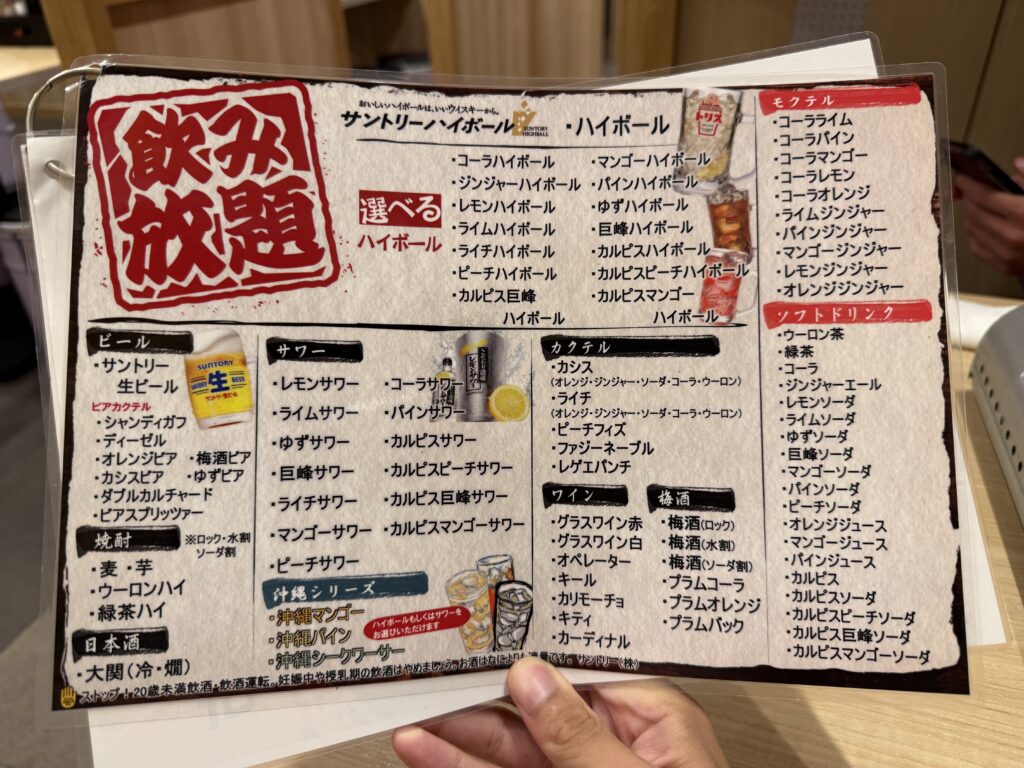 飲み
放題
おいしいハイボールは、いいウイスキーから。
サントリーハイボール
SUNTORY
HIGHBALL
・ハイボール
トリス
選べる
ハイボール
・コーラハイボール
・ジンジャーハイボール
・レモンハイボール
・ライムハイボール
・ライチハイボール
・ピーチハイボール
・カルピス巨峰
ハイボール
・マンゴーハイボール
・パインハイボール
・ゆずハイボール
・巨峰ハイボール
・カルピスハイボール
・カルピスピーチハイボール
・カルピスマンゴー
ハイボール
ビール
・サントリー
生ビール
SUNTORY
生
BEER
サントリー生ビール
ビアカクテル
・シャンディガフ
・ディーゼル
・オレンジビア ・梅酒ビア
・カシスビア ・ゆずビア
・ダブルカルチャード
・ビアスプリッツァー
焼酎
※ロック・水割
ソーダ割
・麦 ・芋
・ウーロンハイ
・緑茶ハイ
日本酒
・大関（冷・燗）
サワー
・レモンサワー
・ライムサワー
・ゆずサワー
・巨峰サワー
・ライチサワー
・マンゴーサワー
・ピーチサワー
・コーラサワー
・パインサワー
・カルピスサワー
・カルピスピーチサワー
・カルピス巨峰サワー
・カルピスマンゴーサワー
レモンサワー
沖縄シリーズ
・沖縄マンゴー
・沖縄パイン
・沖縄シークワーサー
ハイボールもしくはサワーを
お選びいただけます
カクテル
・カシス
（オレンジ・ジンジャー・ソーダ・コーラ・ウーロン）
・ライチ
（オレンジ・ジンジャー・ソーダ・コーラ・ウーロン）
・ピーチフィズ
・ファジーネーブル
・レゲエパンチ
ワイン
・グラスワイン赤
・グラスワイン白
・オペレーター
・キール
・カリモーチョ
・キティ
・カーディナル
梅酒
・梅酒（ロック）
・梅酒（水割）
・梅酒（ソーダ割）
・プラムコーラ
・プラムオレンジ
・プラムバック
モクテル
・コーラライム
・コーラパイン
・コーラマンゴー
・コーラレモン
・コーラオレンジ
・ライムジンジャー
・パインジンジャー
・マンゴージンジャー
・レモンジンジャー
・オレンジジンジャー
ソフトドリンク
・ウーロン茶
・緑茶
・コーラ
・ジンジャーエール
・レモンソーダ
・ライムソーダ
・ゆずソーダ
・巨峰ソーダ
・マンゴーソーダ
・パインソーダ
・ピーチソーダ
・オレンジジュース
・マンゴージュース
・パインジュース
・カルピス
・カルピスソーダ
・カルピスピーチソーダ
・カルピス巨峰ソーダ
・カルピスマンゴーソーダ
ストップ！20歳未満飲酒・飲酒運転。妊娠中や授乳期の飲酒はやめましょう。お酒はなによりも適量です。サントリー（株）